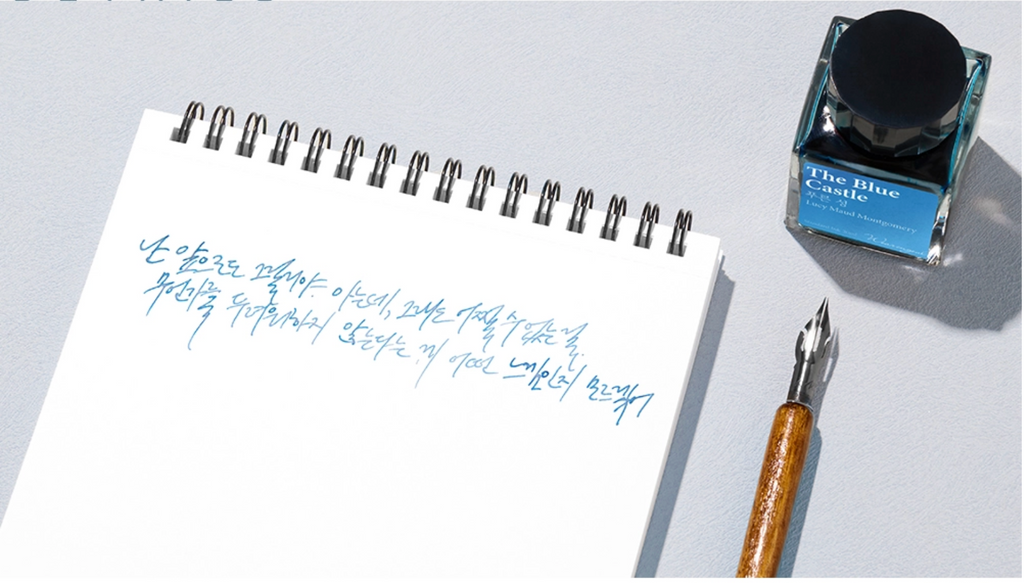 난 앞으로도 그럴거야. 아는데, 그래도 어쩔 수 없는걸.
무언가를 두려워하지 않는다는 게 어떤 느낌인지 모르겠어
The Blue
Castle
푸른 성
Lucy Maud Montgomery